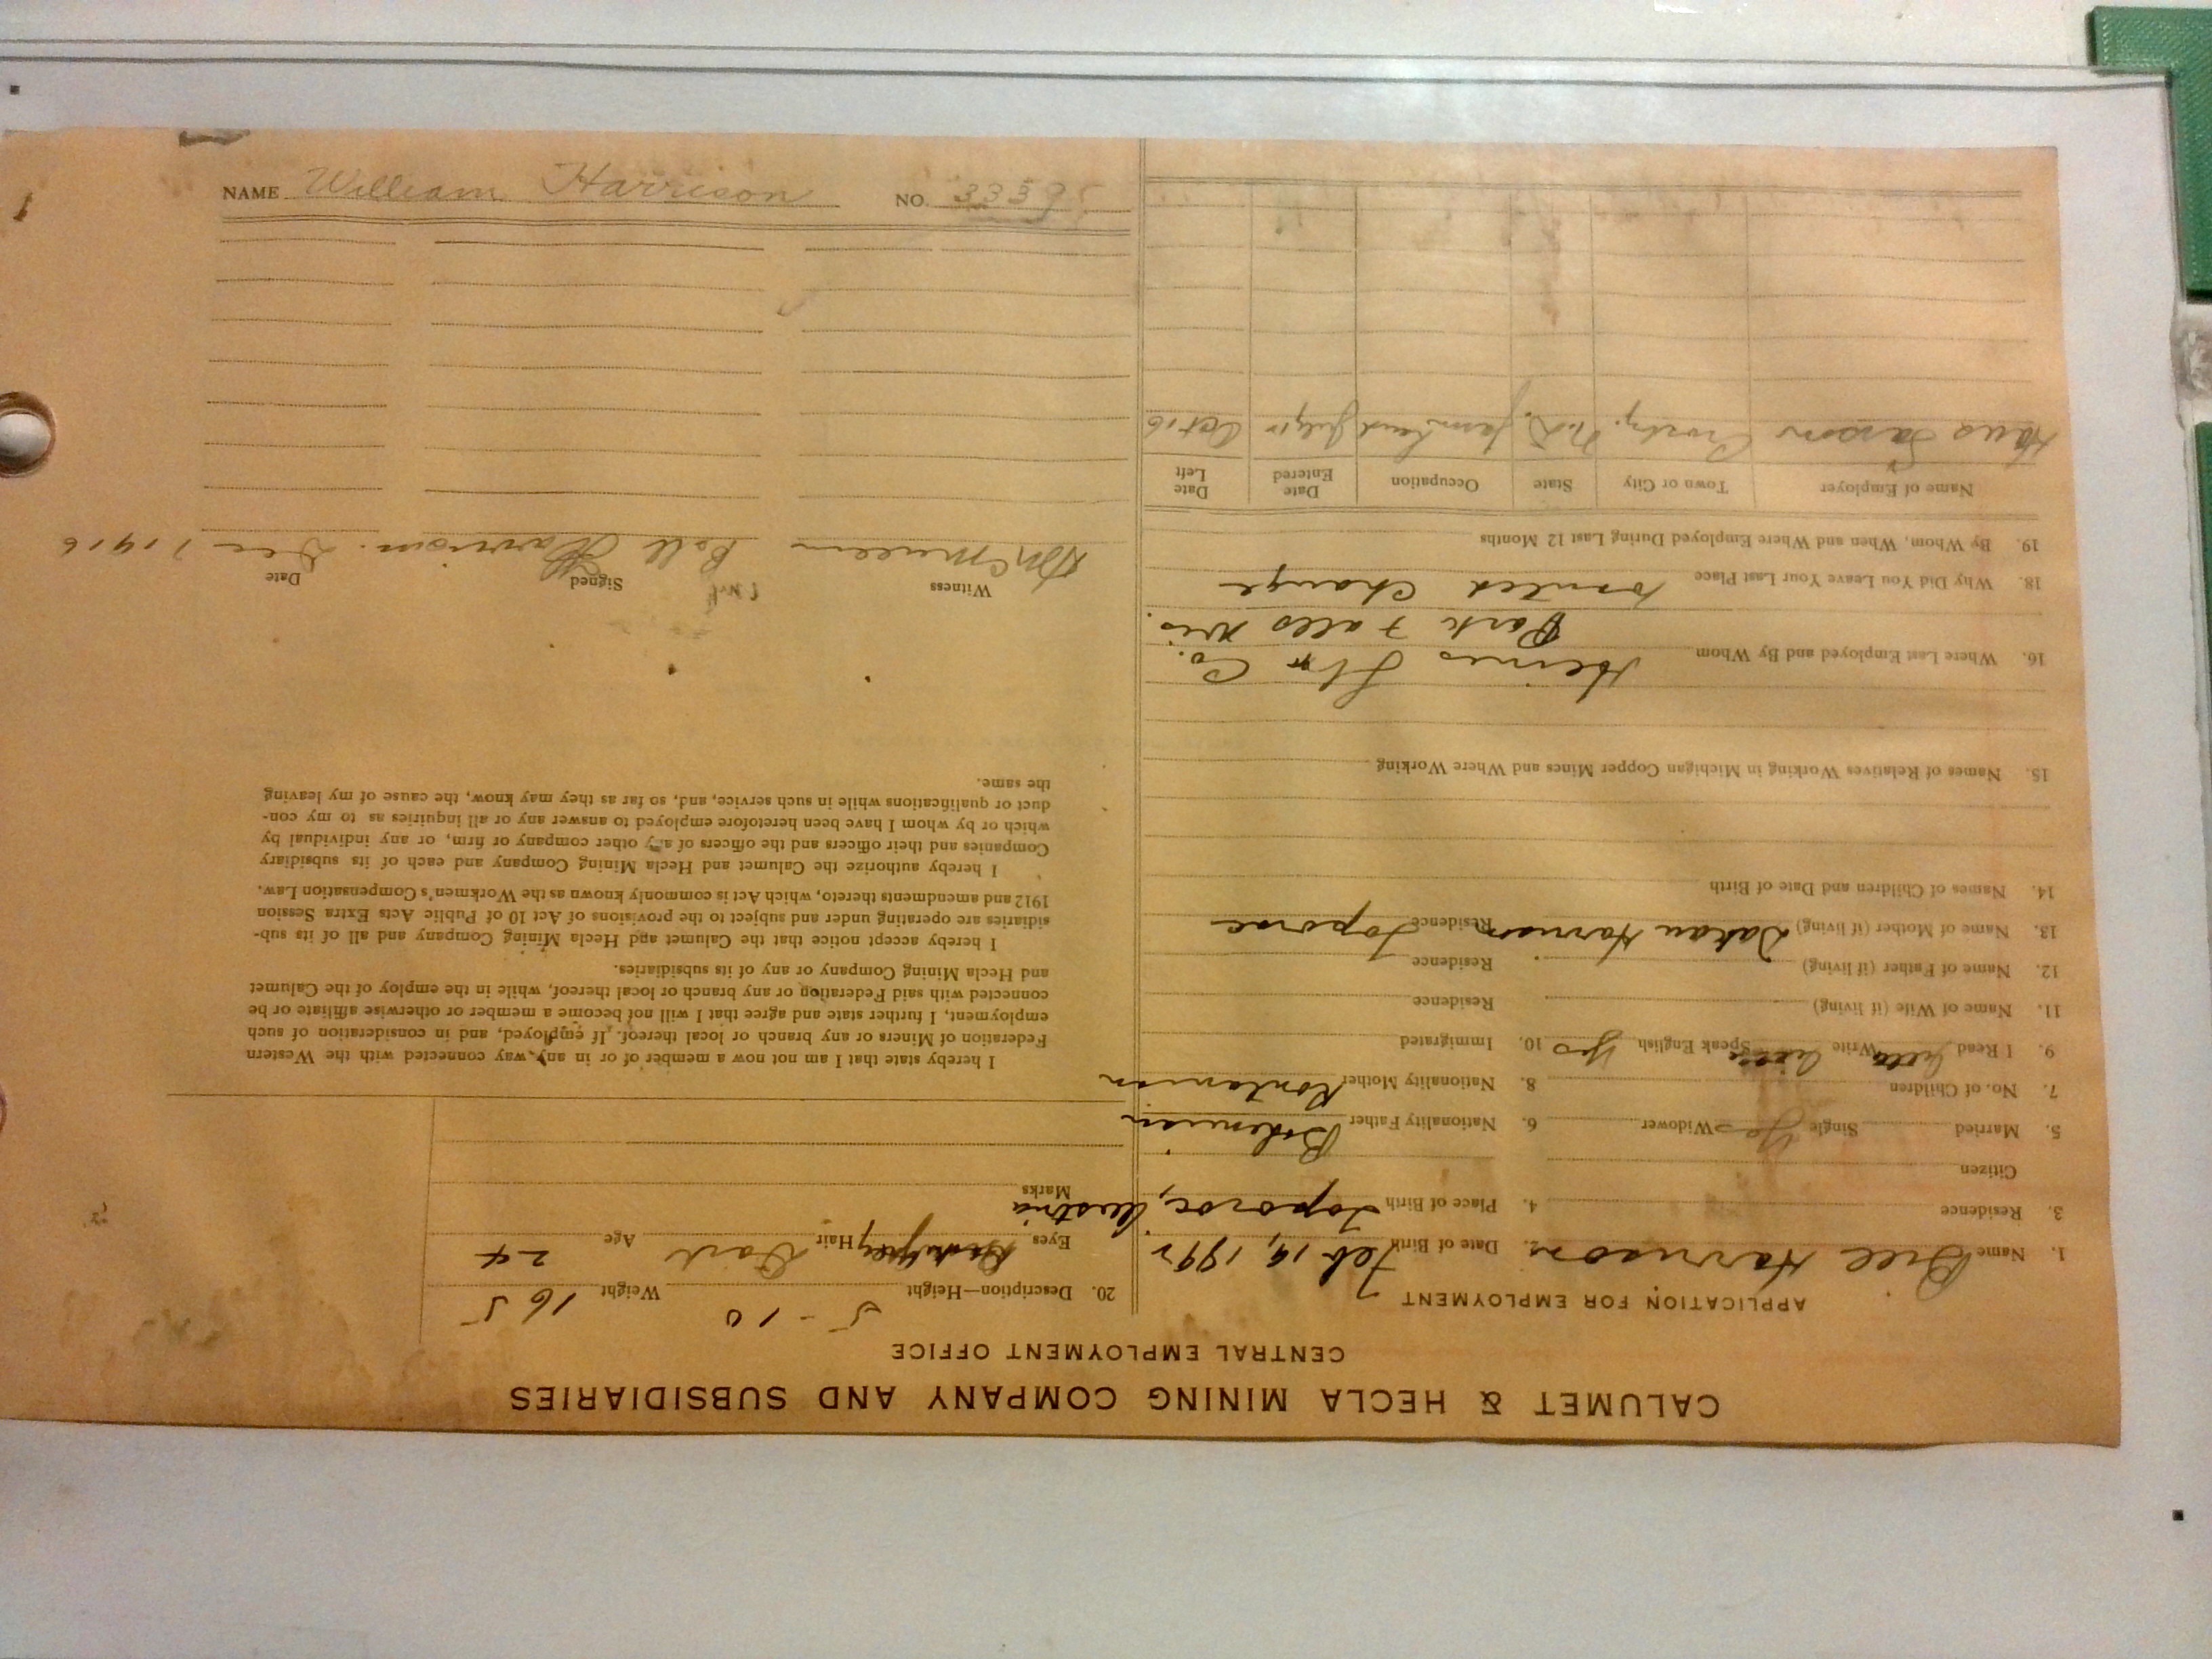 CALUMET & HECLA MINING COMPANY AND SUBSIDIARIES
CENTRAL EMPLOYMENT OFFICE
APPLICATION FOR EMPLOYMENT
1. Name Bill Harrison 2. Date of Birth Feb 19, 1892
3. Residence 4. Place of Birth Toporoc, Austria
Citizen
5. Married Single Yes Widower 6. Nationality Father Bohemian
7. No. of Children 8. Nationality Mother
9. I Read Write Speak English Yes 10. Immigrated
11. Name of Wife (if living) Residence
12. Name of Father (if living) Residence
13. Name of Mother (if living) Harrison Residence Toporoc
14. Names of Children and Date of Birth
15. Names of Relatives Working in Michigan Copper Mines and Where Working
16. Where Last Employed and By Whom Co.
Park Falls Wis.
18. Why Did You Leave Your Last Place wanted change
19. By Whom, When and Where Employed During Last 12 Months
Name of Employer Town or City State Occupation Date Entered Date Left
Hans Larson Crosby. N.D. farm hand July 15 Oct 16
20. Description—Height 5-10 Weight 165
Eyes Hair Dark Age 24
Marks
I hereby state that I am not now a member of or in any way connected with the Western
Federation of Miners or any branch or local thereof. If employed, and in consideration of such
employment, I further state and agree that I will not become a member or otherwise affiliate or be
connected with said Federation or any branch or local thereof, while in the employ of the Calumet
and Hecla Mining Company or any of its subsidiaries.
I hereby accept notice that the Calumet and Hecla Mining Company and all of its sub-
sidiaries are operating under and subject to the provisions of Act 10 of Public Acts Extra Session
1912 and amendments thereto, which Act is commonly known as the Workmen's Compensation Law.
I hereby authorize the Calumet and Hecla Mining Company and each of its subsidiary
Companies and their officers and the officers of any other company or firm, or any individual by
which or by whom I have been heretofore employed to answer any or all inquiries as to my con-
duct or qualifications while in such service, and, so far as they may know, the cause of my leaving
the same.
Witness Signed Date
McMillen Bill Harrison. Dec 7 1916
NAME William Harrison NO. 33595